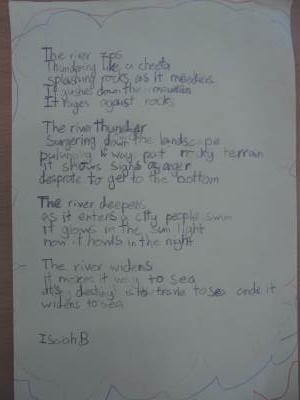 The river zps
Thundering like a cheeta
splashing rocks as it meanders
It gushes down the mountain
It rages against rocks
The river thunder
Surgering down the landscape
its way past rocky terrain
it shows signs of anger
desprate to get to the bottom
The river deepens
as it enters a city people swim
it glows in the sun light
now it howls in the night
The river widens
it makes it way to sea
destiny is to travle to sea and it
widens to sea
Isaiah.B